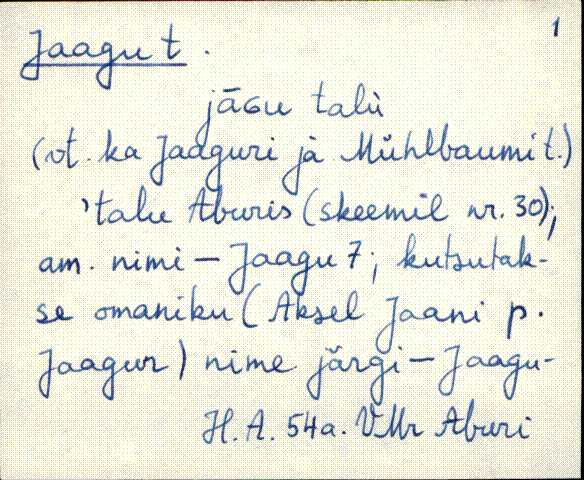 1
Jaagu t.
jāGu talu
(vt. ka Jaaguri ja Mühlbaumi t.)
'talu Aburis (skeemil nr. 30);
am. nimi – Jaagu 7; kutsutak-
se omaniku (Aksel Jaani p.
Jaagur) nime järgi – Jaagu-
H.A. 54a. VMr Aburi